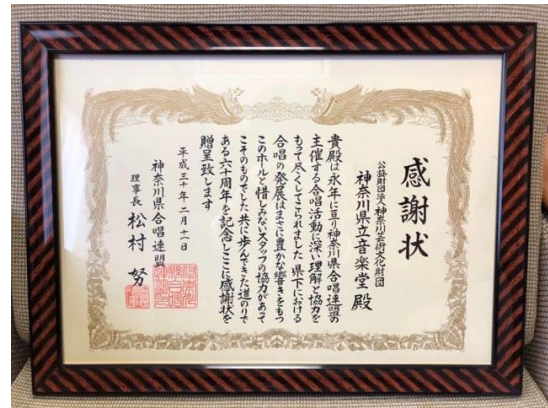 感謝状
公益財団法人神奈川芸術文化財団
神奈川県立音楽堂 殿
貴殿は永年に亘り神奈川県合唱連盟の
主催する合唱活動に深い理解と協力を
もって尽くしてこられました 県下における
合唱の発展はまさに豊かな響きをもつ
このホールと惜しみないスタッフの協力があって
こそのものでした 共に歩んできた道のりで
ある六十周年を記念しここに感謝状を
贈呈致します
平成三十年二月十一日
神奈川県合唱連盟
理事長 松村 努